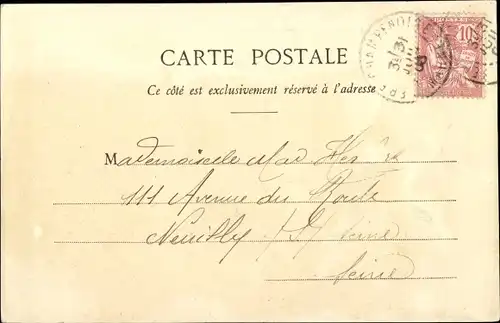 CARTE POSTALE
Ce côté est exclusivement réservé à l'adresse
Mademoiselle
111 Avenue du Roule
Neuilly S/ Seine
Seine
10
31